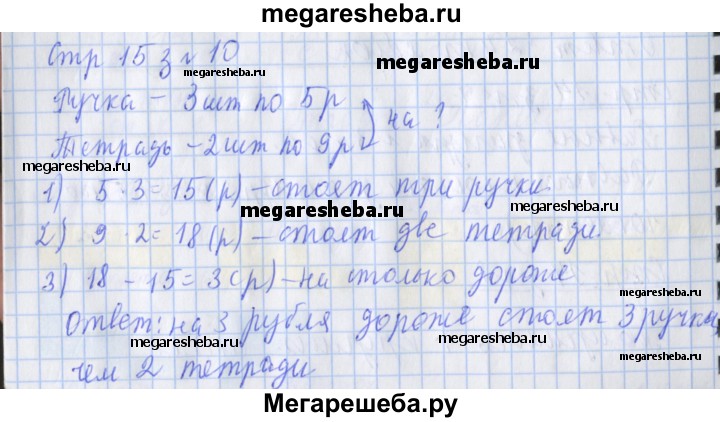 megaresheba.ru
Стр 15 з № 10
megaresheba.ru
megaresheba.ru
megaresheba.ru
Ручка – 3 шт по 5 р
на ?
Тетрадь – 2 шт по 9 р
megaresheba.ru
1) 5 · 3 = 15 (р) – стоят три ручки.
megaresheba.ru
megaresheba.ru
2) 9 · 2 = 18 (р) – стоят две тетради.
megaresheba.ru
3) 18 – 15 = 3 (р) – на столько дороже
megaresheba.ru
Ответ: на 3 рубля дороже стоят 3 ручки,
megaresheba.ru
megaresheba.ru
чем 2 тетради
Мегарешеба.ру